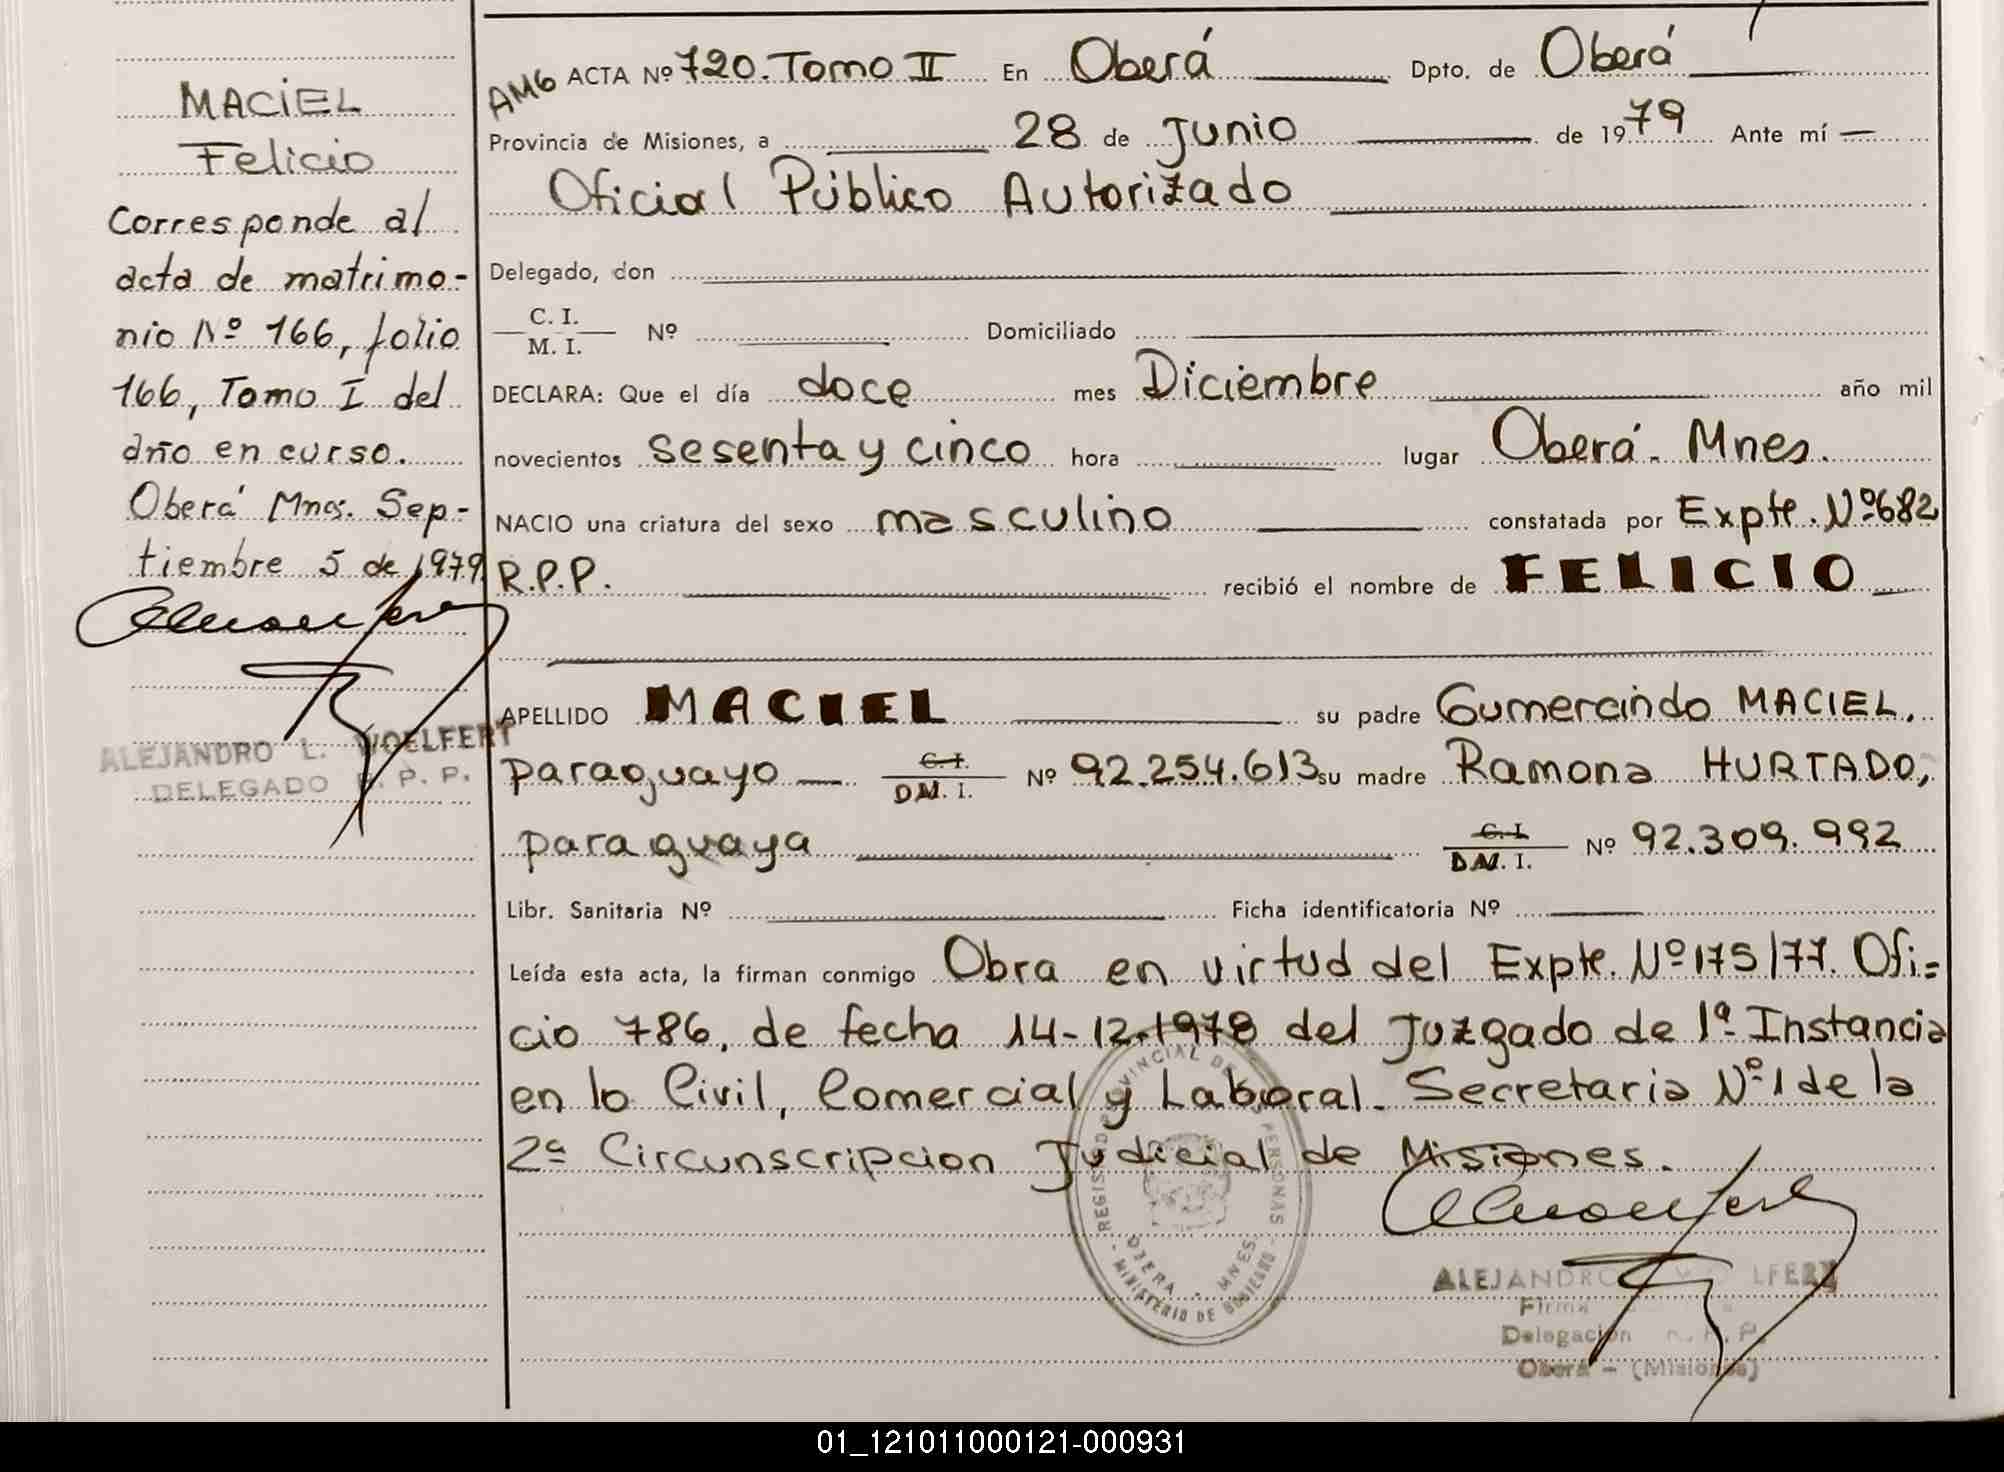 MACIEL
Felicio
Corresponde al
acta de matrimo-
nio Nº 166, folio
166, Tomo I del
año en curso.
Oberá Mnes. Sep-
tiembre 5 de 1979
ALEJANDRO L. WOELFERT
DELEGADO R. P. P.
AMG ACTA Nº 720. Tomo II En Oberá Dpto. de Oberá
Provincia de Misiones, a 28 de Junio de 1979 Ante mí
Oficial Público Autorizado
Delegado, don
C. I.
M. I. Nº Domiciliado
DECLARA: Que el día doce mes Diciembre año mil
novecientos sesenta y cinco hora lugar Oberá. Mnes.
NACIO una criatura del sexo masculino constatada por Expte. Nº 682
R.P.P. recibió el nombre de FELICIO
APELLIDO MACIEL su padre Gumercindo MACIEL,
paraguayo C. I. D.N. I. Nº 92.254.613 su madre Ramona HURTADO,
paraguaya C. I. D.N. I. Nº 92.309.992
Libr. Sanitaria Nº Ficha identificatoria Nº
Leída esta acta, la firman conmigo Obra en virtud del Expte. Nº 175/77. Ofi-
cio 786, de fecha 14-12-1978 del Juzgado de 1ª Instancia
en lo Civil, Comercial y Laboral. Secretaria Nº 1 de la
2ª Circunscripcion Judicial de Misiones.
REGISTRO PROVINCIAL DE LAS PERSONAS
OBERA - MNES.
MINISTERIO DE GOBIERNO
ALEJANDRO WOELFERT
Firma
Delegación R. P. P.
Oberá - (Misiones)
01_121011000121-000931